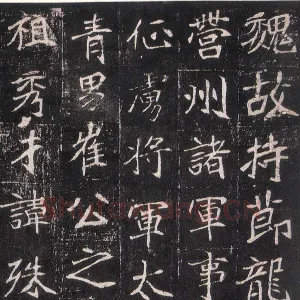 魏故持節龍
營州諸軍事
征虜將軍太
青男崔公之
祖秀才諱殊